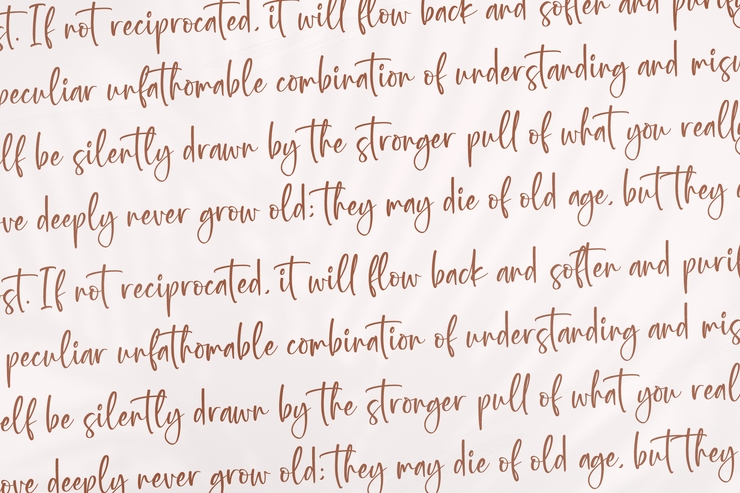 st. If not reciprocated, it will flow back and soften and purify
peculiar unfathomable combination of understanding and misu
lf be silently drawn by the stronger pull of what you really
ve deeply never grow old; they may die of old age, but they
st. If not reciprocated, it will flow back and soften and purif
peculiar unfathomable combination of understanding and mis
elf be silently drawn by the stronger pull of what you real
ove deeply never grow old; they may die of old age, but they